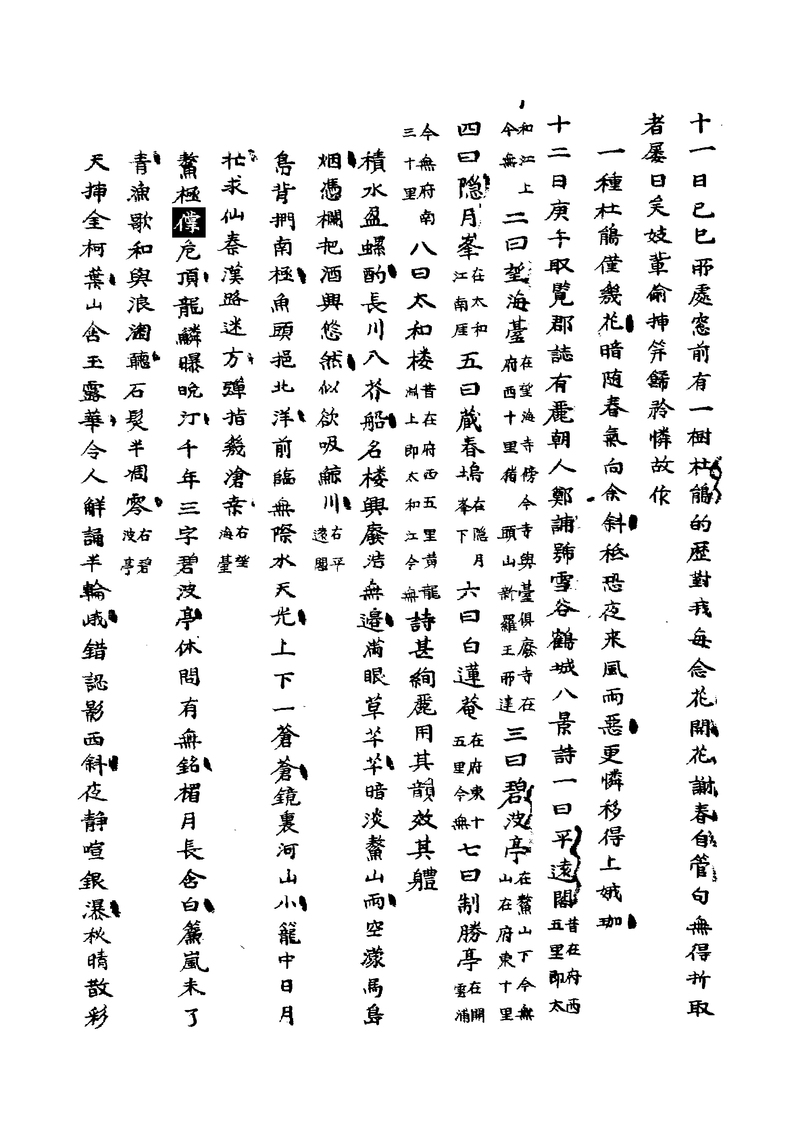 十一日己巳所處窓前有一樹杜鵑的歷對我每念花開花謝春自管句無得折取
者屢日矣妓輩偷揷笄歸矜憐故作
一種杜鵑僅幾花暗随春氣向余斜秪恐夜来風雨惡更憐移得上娥珈
十二日庚午取覽郡誌有麗朝人鄭誧號雪谷鶴城八景詩一曰平遠閣昔在府西五里即太
和江上今無二曰望海臺在望海寺傍今寺與臺俱廢寺在府西十里猪頭山新羅王所建三曰碧波亭在鰲山下今無山在府東十里
四曰隐月峯在太和江南厓五曰蔵春塢在隠月峯下六曰白蓮菴在府東十五里今無七曰制勝亭在開雲浦
今無府南三十里八曰太和楼昔在府西五里黄龍渊上即太和江今無詩甚絢麗用其韻效其軆
積水盈螺酌長川入芥船名楼興廢浩無邉满眼草芊芊暗淡鰲山雨空濛馬島
烟憑欄把酒興悠然似欲吸鯨川右平遠閣
島背捫南極魚頭挹北洋前臨無際水天光上下一蒼蒼鏡裏河山小籠中日月
忙求仙秦漢路迷方彈指幾滄桒右望海臺
鰲極撑危頂龍鱗曝晩汀千年三字碧波亭休問有無銘楣月長含白簾嵐未了
青漁歌和與浪淘聽石髮半凋零右碧波亭
天揷全柯葉山含玉露華令人觧誦半輪峨錯認影西斜夜静喧銀瀑秋晴散彩